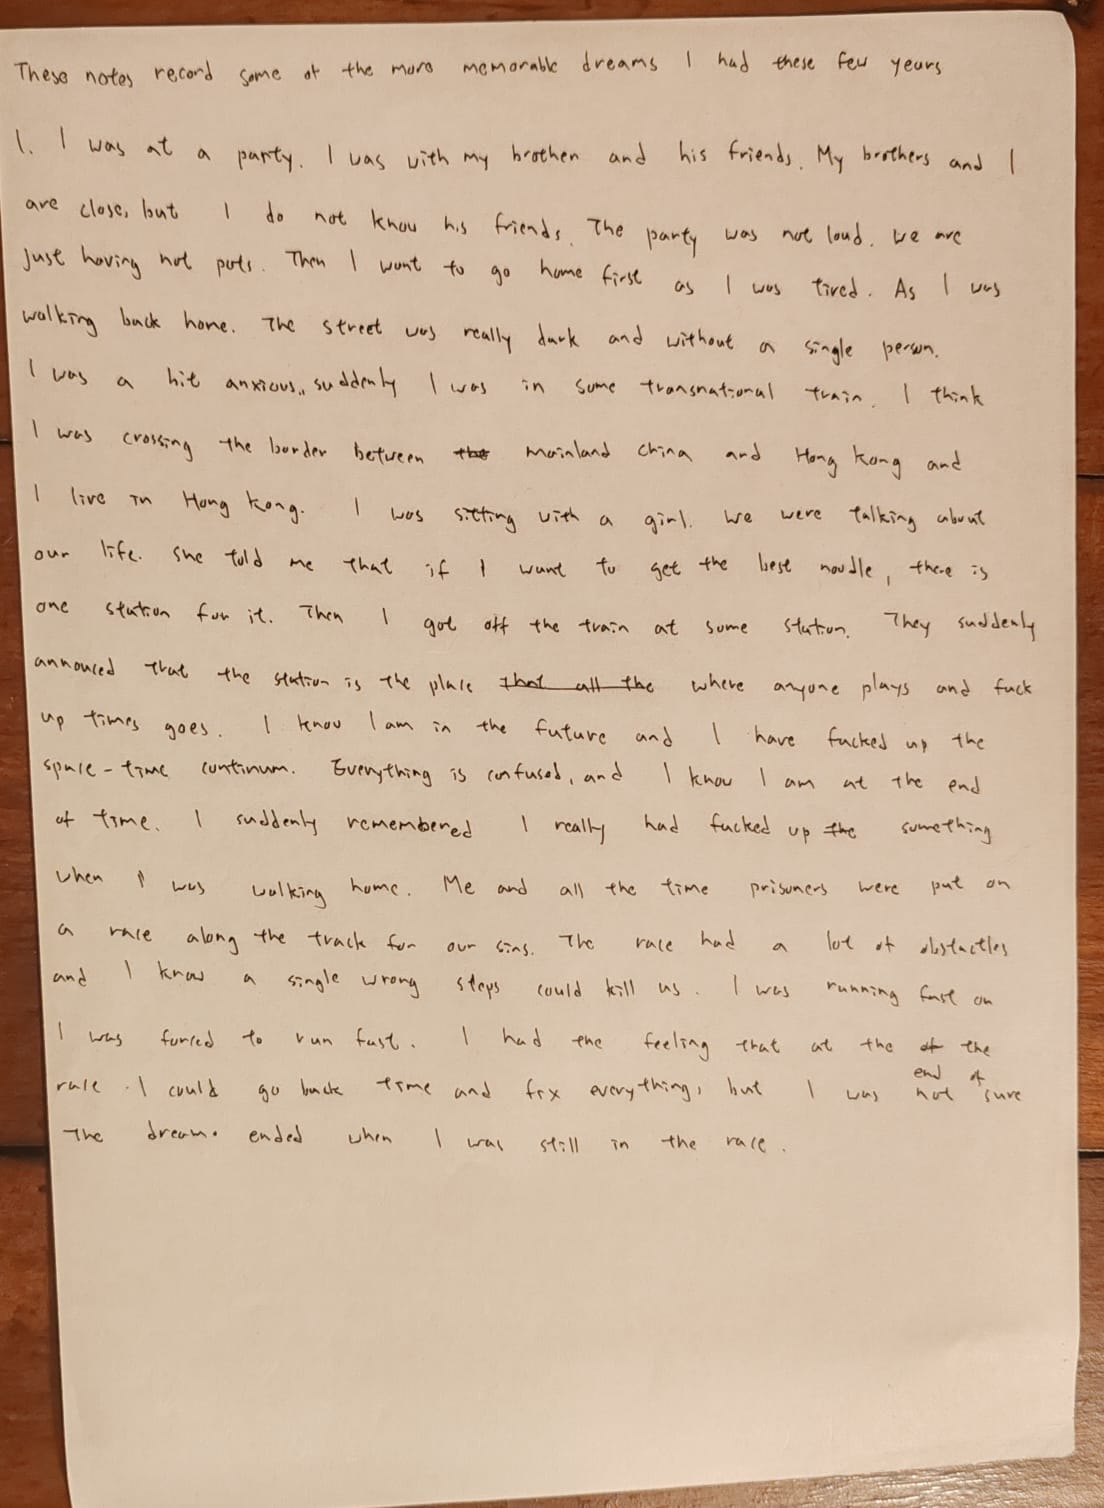 These notes record some of the more memorable dreams I had these few years
1. I was at a party. I was with my brother and his friends. My brothers and I
are close, but I do not know his friends. The party was not loud. We are
just having hot pots. Then I want to go home first as I was tired. As I was
walking back home. The street was really dark and without a single person.
I was a bit anxious.. suddenly I was in some transnational train. I think
I was crossing the border between the mainland china and Hong Kong and
I live in Hong Kong. I was sitting with a girl. We were talking about
our life. She told me that if I want to get the best noodle, there is
one station for it. Then I got off the train at some station. They suddenly
annouced that the station is the place that all the where anyone plays and fuck
up times goes. I know I am in the future and I have fucked up the
space-time continum. Everything is confused, and I know I am at the end
of time. I suddenly remembered I really had fucked up the something
when I was walking home. Me and all the time prisoners were put on
a race along the track for our sins. The race had a lot of obstactles
and I know a single wrong steps could kill us. I was running fast on
I was forced to run fast. I had the feeling that at the of the
end of
race. I could go back time and fix everything, but I was not sure
The dream. ended when I was still in the race.